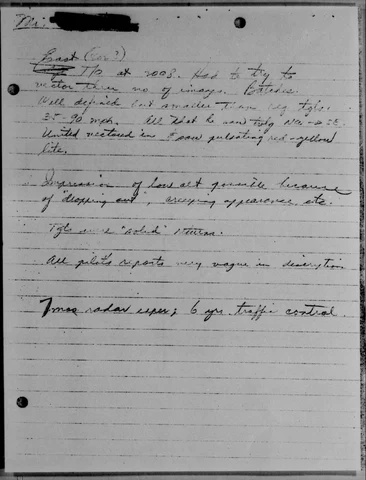 Mr.
East (Nov?)
TPA at 2003. Had to try to
vector them no of images. Batches.
Well defined but smaller than reg tgts.
35-90 mph. All that he saw
United vectored in & saw pulsating red-yellow
lite.
Impression of low alt possible because
of "dropping out", creeping appearance etc.
Tgts were "solid" returns.
All pilots reports very vague in description
7 mos radar exper; 6 yrs traffic control